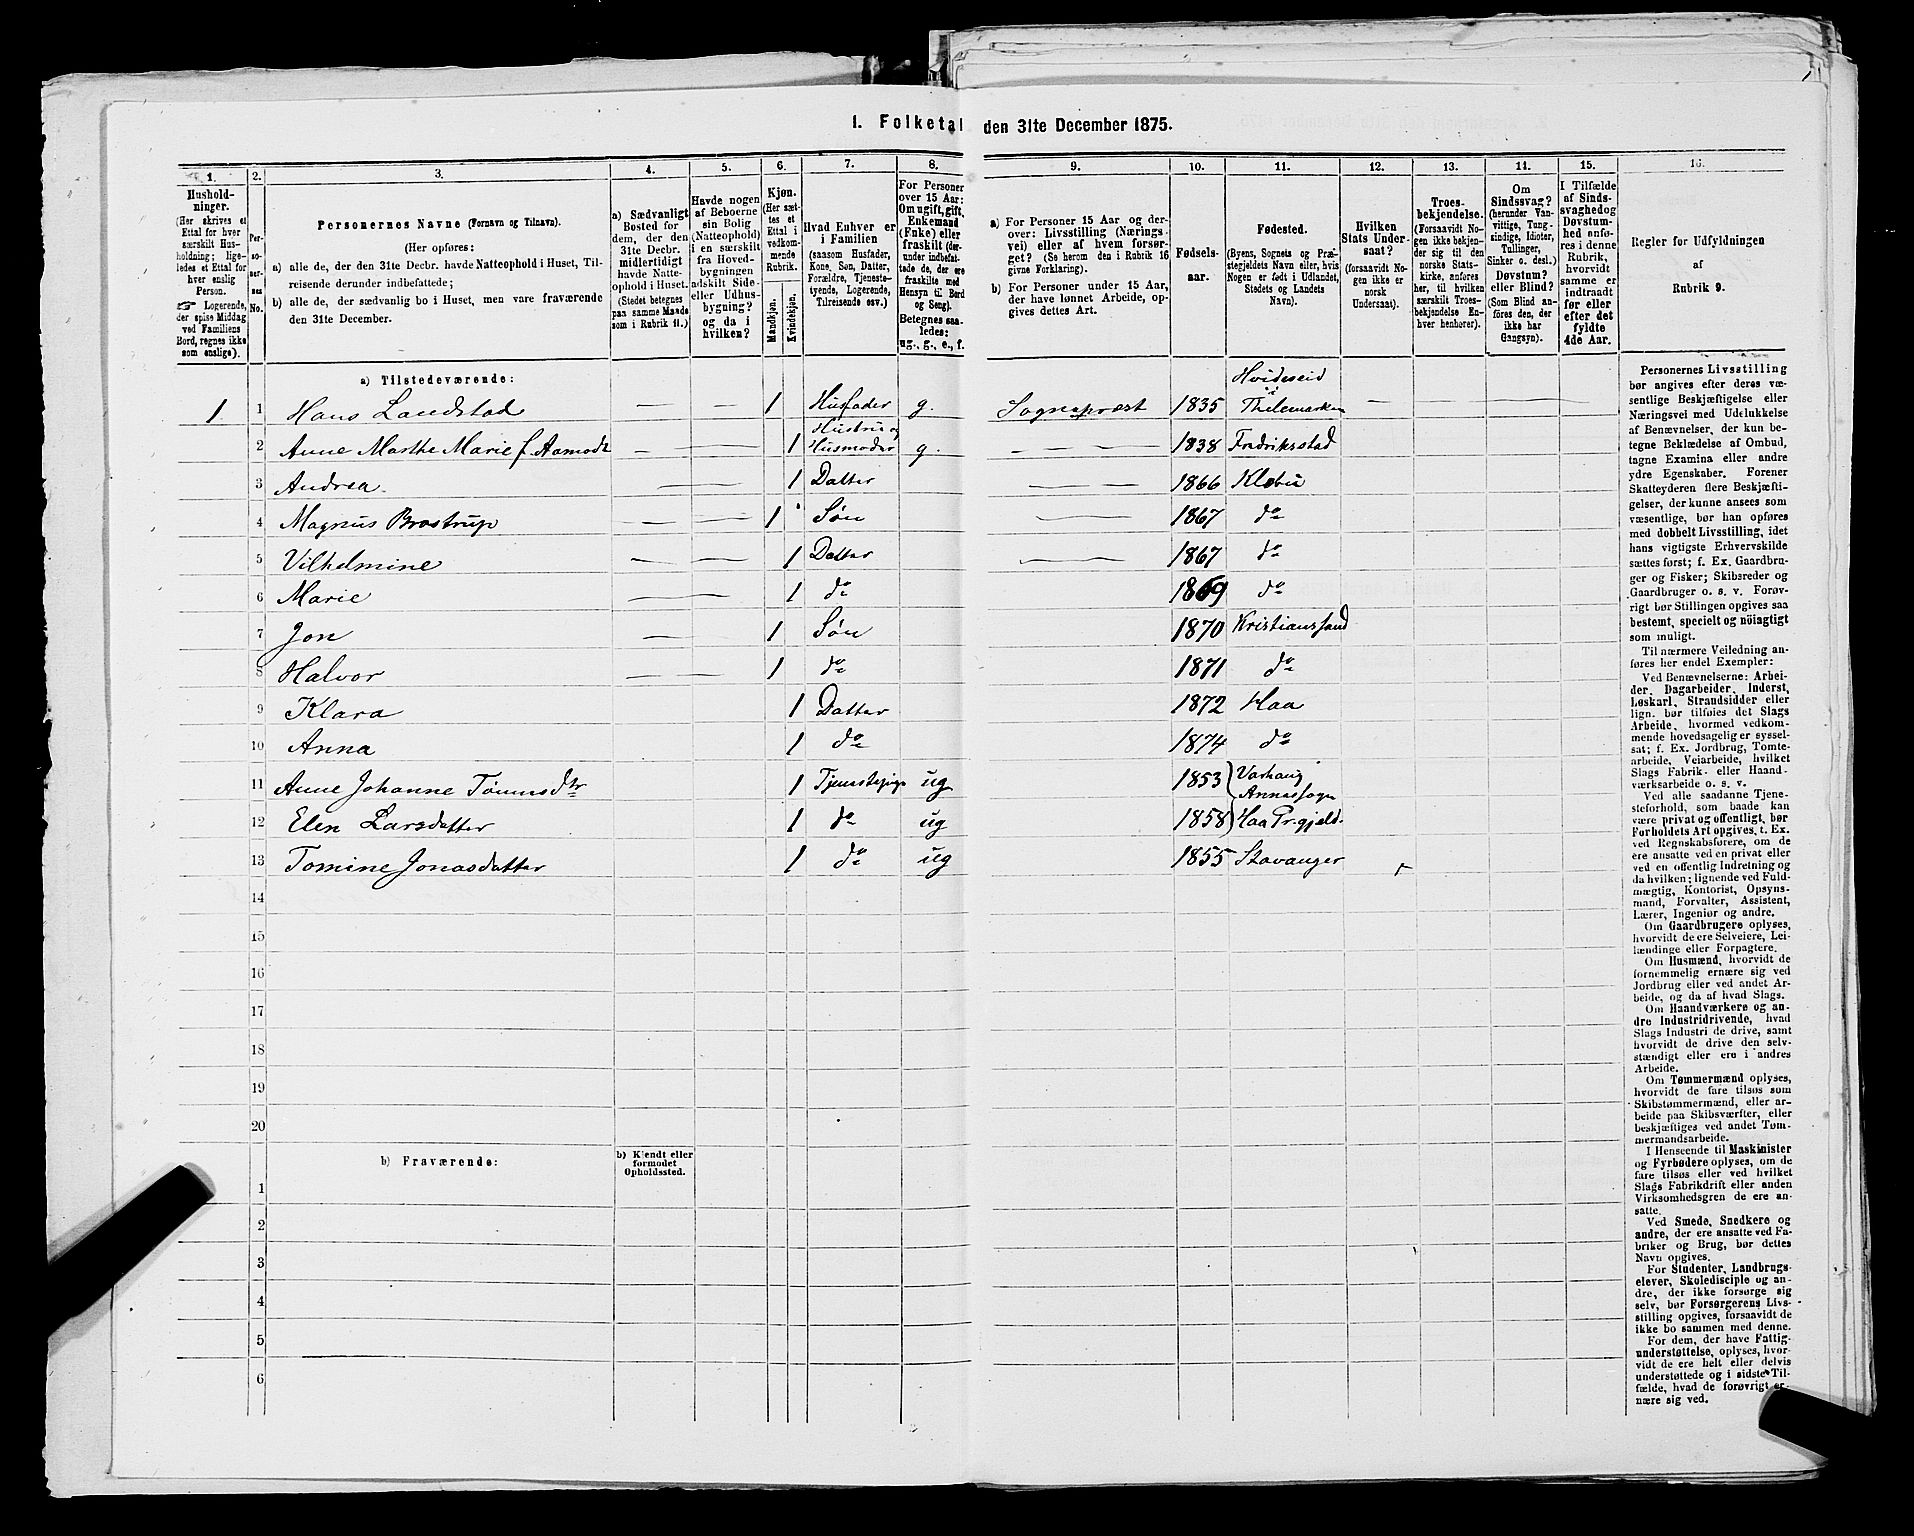 1. Folketal den 31te December 1875.
1. 2. 3. 4. 5. 6. 7. 8. 9. 10. 11. 12. 13. 14. 15. 16.
Hushold-
ninger.
(Her skrives et
Ettal for hver
særskilt Hus-
holdning; lige-
ledes et Ettal for
hver enslig
Person.
☞ Logerende,
der spise Middag
ved Familiens
Bord, regnes ikke
som enslige).
Per-
so-
ner-
nes
No.
Personernes Navne (Fornavn og Tilnavn).
(Her opføres:
a) alle de, der den 31te Decbr. havde Natteophold i Huset, Til-
reisende derunder indbefattede;
b) alle de, der sædvanlig bo i Huset, men vare fraværende
den 31te December.
a) Sædvanligt
Bosted for
dem, der den
31te Decbr.
midlertidigt
havde Natte-
ophold i Huset.
(Stedet betegnes
paa samme Maade
som i Rubrik 11.)
Havde nogen
af Beboerne
sin Bolig
(Natteophold)
i en særskilt
fra Hoved-
bygningen
adskilt Side-
eller Udhus-
bygning?
og da i
hvilken?
Kjøn.
(Her sæt-
tes et
Ettal i
vedkom-
mende
Rubrik.
Mandkjøn.
Kvindekjøn.
Hvad Enhver er
i Familien
(saasom Husfader,
Kone, Søn, Datter,
Forældre, Tjeneste-
tyende, Logerende,
Tilreisende osv.)
For Personer
over 15 Aar:
Om ugift, gift,
Enkemand
(Enke) eller
fraskilt (der-
under indbefat-
tede de, der ere
fraskilte med
Hensyn til Bord
og Seng).
Betegnes saa-
ledes:
ug., g., e., f.
a) For Personer 15 Aar og der-
over: Livsstilling (Nærings-
vei) eller af hvem forsør-
get? (Se herom den i Rubrik 16
givne Forklaring).
b) For Personer under 15 Aar,
der have lønnet Arbeide, op-
gives dettes Art.
Fødsels-
aar.
Fødested.
(Byens, Sognets og Præ-
stegjeldets Navn eller, hvis
Nogen er født i Udlandet,
Stedets og Landets
Navn).
Hvilken
Stats Under-
saat?
(forsaavidt No-
gen ikke er
norsk
Undersaat).
Troes-
bekjendelse.
(Forsaavidt No-
gen ikke bekjen-
der sig til den
norske Stats-
kirke, anføres
her, til hvilken
særskilt Troes-
bekjendelse En-
hver henhører).
Om
Sindssvag?
(herunder Van-
vittige, Tung-
sindige, Idioter,
Tullinger,
Sinker o. desl.)
Døvstum?
eller Blind?
(Som Blind an-
føres den, der
ikke har
Gangsyn).
I Tilfælde
af Sinds-
svaghed og
Døvstum-
hed anfø-
res i denne
Rubrik,
hvorvidt
samme er
indtraadt
før eller
efter det
fyldte
4de Aar.
Regler for Udfyldningen
af
Rubrik 9.
a) Tilstedeværende:
1 1 Hans Landstad — — 1 Husfader g. Sognepræst 1835 Hvideseid i Thelemarken — — — —
2 Anne Marthe Marie f. Aamodt — — 1 Hustru og Husmoder g. — — — 1838 Fredriksstad
3 Andrea — — 1 Datter — — 1866 Klæbu
4 Magnus Brostrup — — 1 Søn — 1867 do
5 Vilhelmine — — 1 Datter — — 1867 do
6 Marie — — 1 do 1869 do
7 Jon — — 1 Søn 1870 Kristianssand
8 Halvor — — 1 do 1871 do
9 Klara 1 Datter 1872 Haa
10 Anna 1 do 1874 do
11 Anne Johanne Tønnesdtr 1 Tjenestepige ug 1853 Varhaug Annexsogn
12 Elen Larsdatter 1 do ug 1858 Haa Pr.gjeld.
13 Tomine Jonasdatter 1 do ug 1855 Stavanger
14
15
16
17
18
19
20
b) Fraværende:
b) Kjendt eller
formodet
Opholdssted.
1
2
3
4
5
6
Personernes Livsstilling
bør angives efter deres væ-
sentlige Beskjæftigelse eller
Næringsvei med Udelukkelse
af Benævnelser, der kun be-
tegne Beklædelse af Ombud,
tagne Examina eller andre
ydre Egenskaber. Forener
Skatteyderen flere Beskjæfti-
gelser, der kunne ansees som
væsentlige, bør han opføres
med dobbelt Livsstilling, idet
hans vigtigste Erhvervskilde
sættes først; f. Ex. Gaardbru-
ger og Fisker; Skibsreder og
Gaardbruger o. s. v. Forøv-
rigt bør Stillingen opgives saa
bestemt, specielt og nöiagtigt
som muligt.
Til nærmere Veiledning an-
føres her endel Exempler:
Ved Benævnelserne: Arbei-
der, Dagarbeider, Inderst,
Løskarl, Strandsidder eller
lign. bør tilføies det Slags
Arbeide, hvormed vedkom-
mende hovedsagelig er syssel-
sat; f. Ex. Jordbrug, Tomte-
arbeide, Veiarbeide, hvilket
Slags Fabrik- eller Haand-
værksarbeide o. s. v.
Ved alle saadanne Tjene-
steforhold, som baade kan
være privat og offentligt, bør
Forholdets Art opgives, t. Ex.
ved Regnskabsførere, om de
ere ansatte ved en privat eller
ved en offentlig Indretning og
da hvilken; lignende ved Fuld-
mægtig, Kontorist, Opsyns-
mand, Forvalter, Assistent,
Lærer, Ingeniør og andre.
Om Gaardbrugere oplyses,
hvorvidt de ere Selveiere, Lei-
lændinge eller Forpagtere.
Om Husmænd, hvorvidt de
fornemmelig ernære sig ved
Jordbrug eller ved andet Ar-
beide, og da af hvad Slags.
Om Haandværkere og an-
dre Industridrivende, hvad
Slags Industri de drive, samt
hvorvidt de drive den selv-
stændigt eller ere i andres
Arbeide.
Om Tømmermænd oplyses,
hvorvidt de fare tilsøs som
Skibstømmermænd, eller ar-
beide paa Skibsværfter, eller
beskjæftiges ved andet Tøm-
mermandsarbeide.
I Henseende til Maskinister
og Fyrbødere oplyses, om de
fare tilsøs eller ved hvilket
Slags Fabrikdrift eller anden
Virksomhedsgren de ere an-
satte.
Ved Smede, Snedkere og
andre, der ere ansatte ved Fa-
briker og Brug, bør dettes
Navn opgives.
For Studenter, Landbrugs-
elever, Skoledisciple og an-
dre, der ikke forsørge sig
selv, bør Forsørgerens Livs-
stilling opgives, forsaavidt de
ikke bo sammen med denne.
For dem, der have Fattig-
understøttelse, oplyses, hvor-
vidt de ere helt eller delvis
understøttede og i sidste Til-
fælde, hvad de forøvrigt er-
nære sig ved.